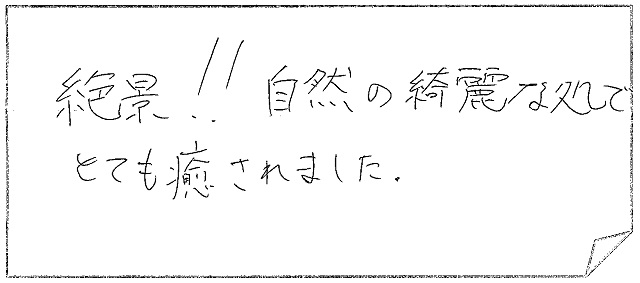 絶景!! 自然の綺麗な処で
とても癒されました.